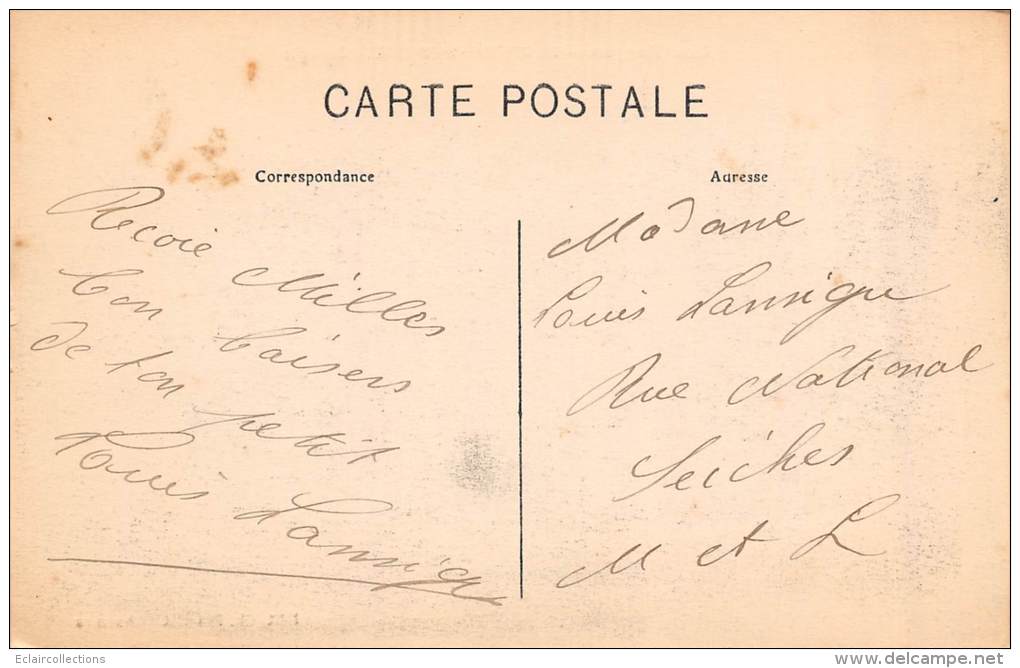 CARTE POSTALE
Correspondance
Recoie Milles
bon baisers
de ton petit
Louis Lannigu
Adresse
Madame
Louis Lannigue
Rue National
Seiches
M et L
Eclaircollections
www.delcampe.net